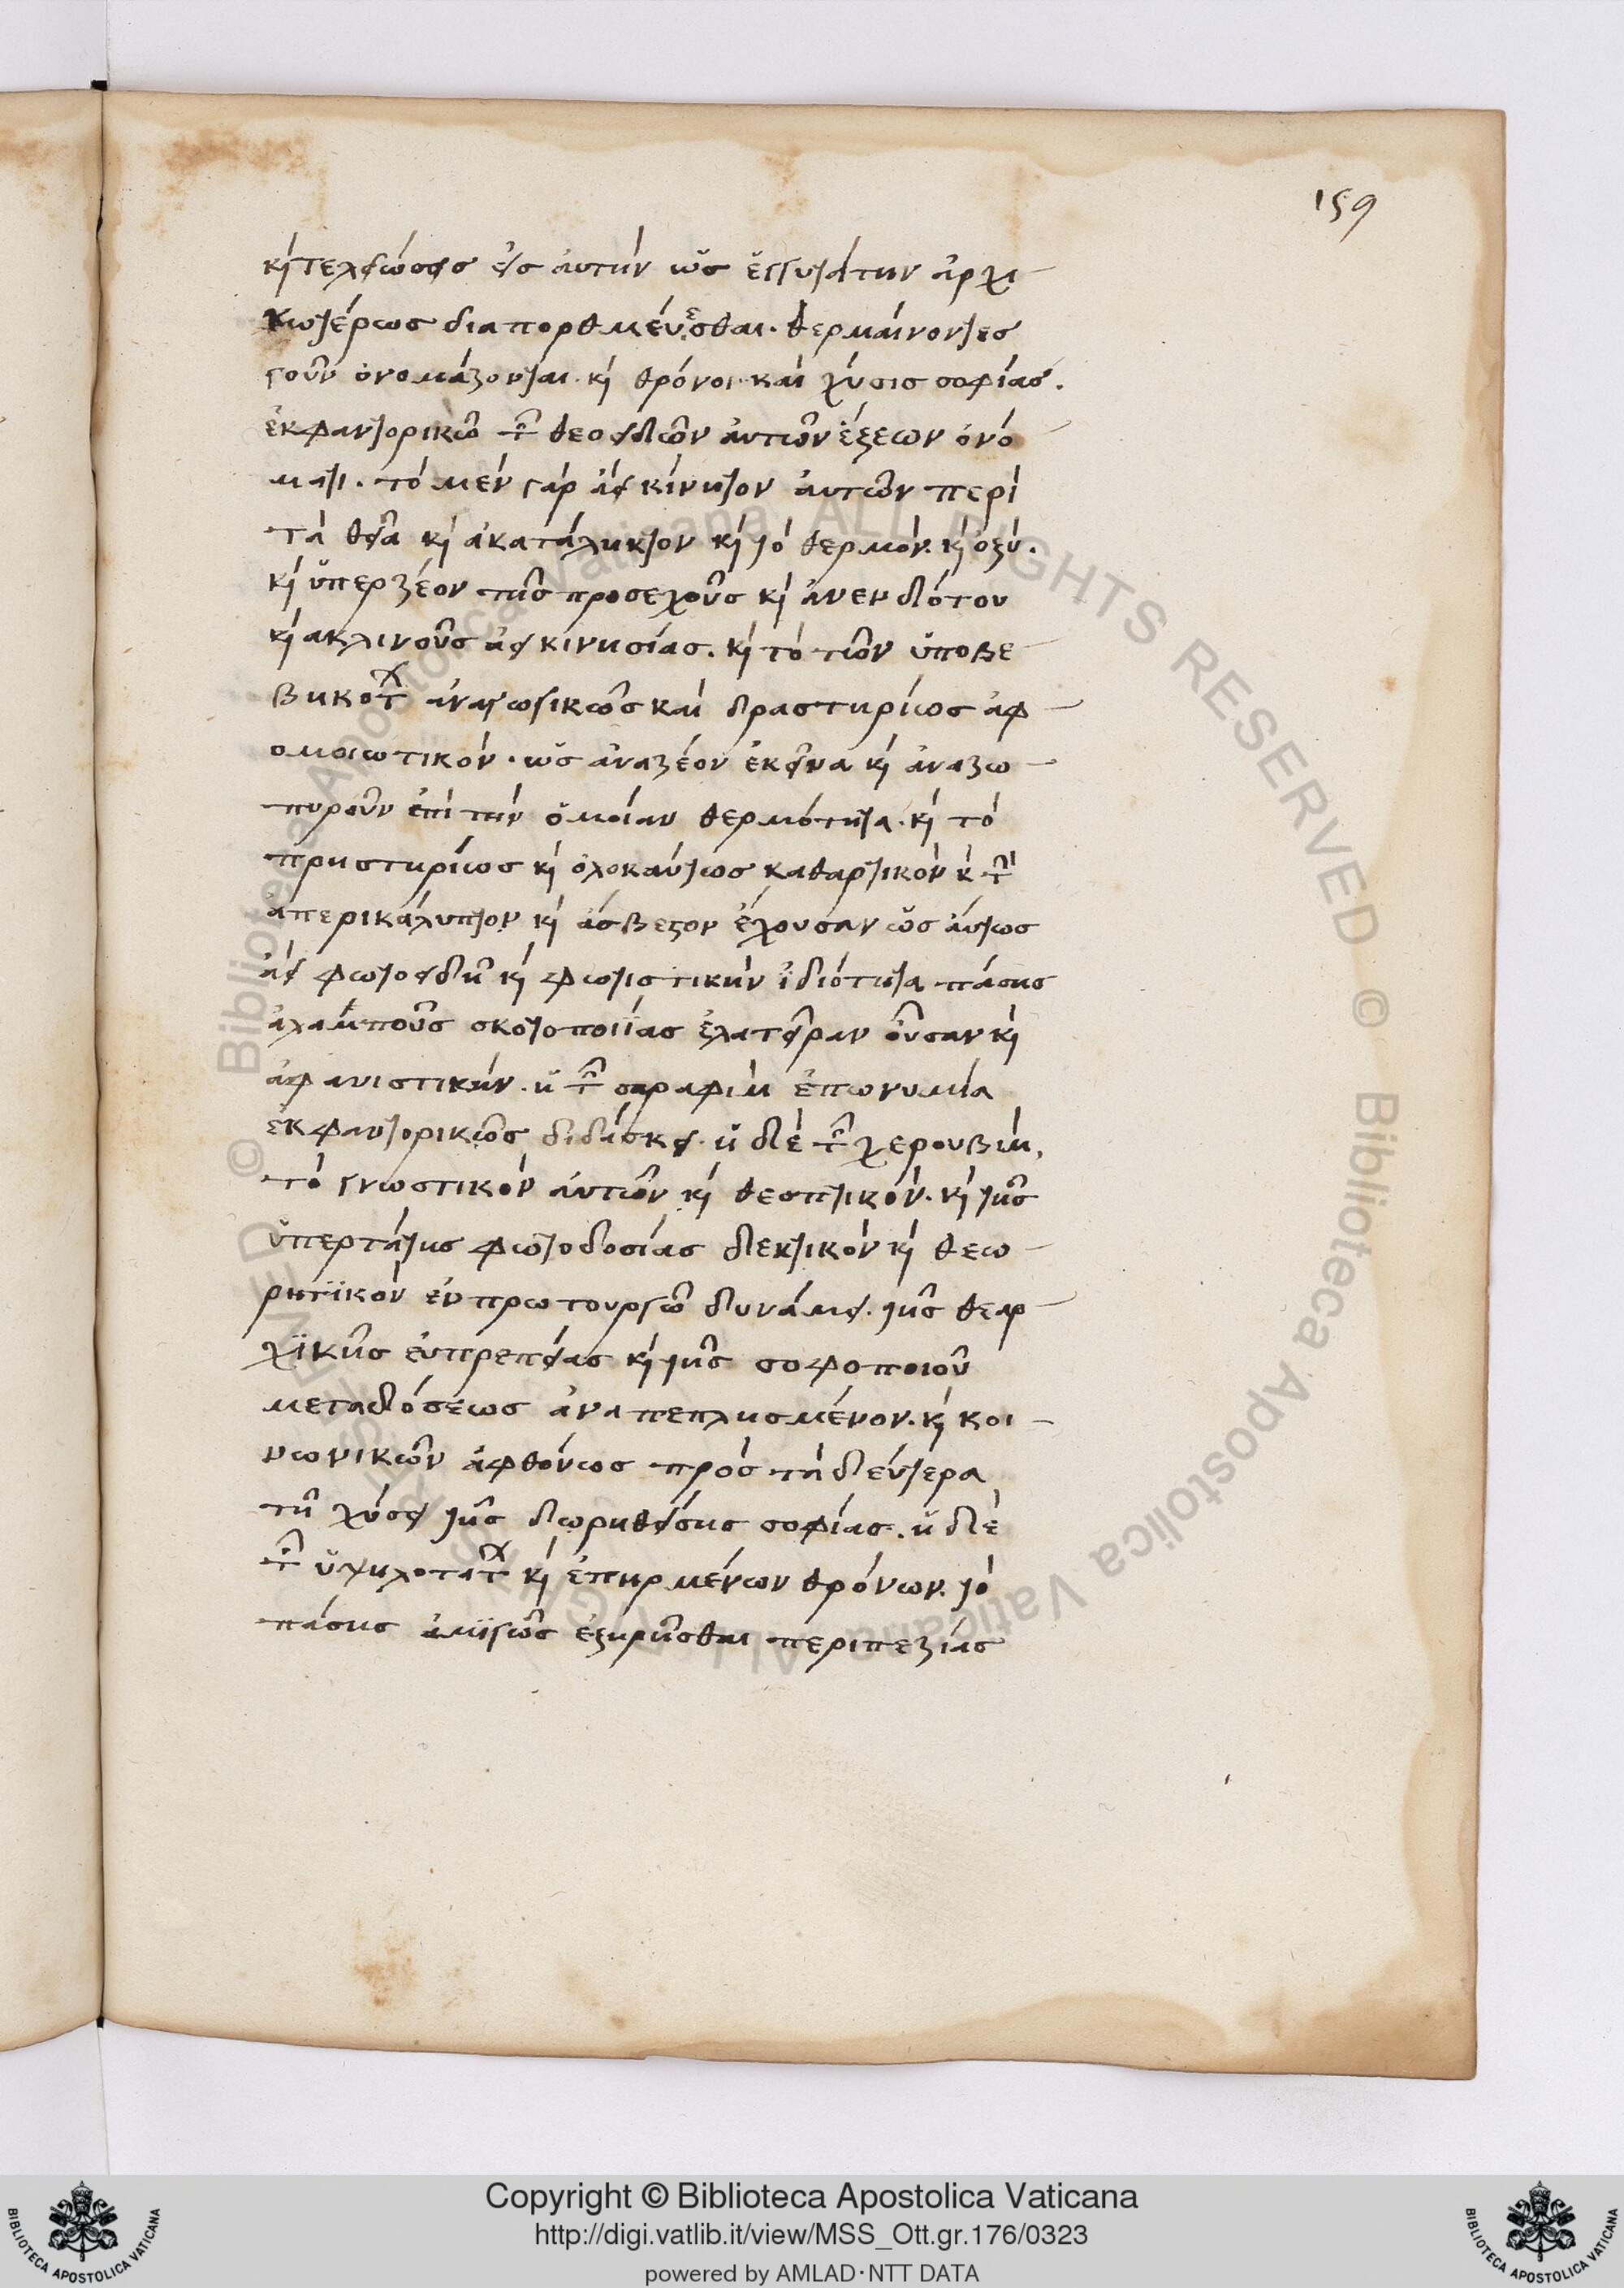 159
κ τελειώσεις εἰς ἀυτὴν ὡς ἐγγυτάτην ἀρχι
κωτέρως διαπορθμέυεσθαι. θερμαίνοντες
γοῦν ὀνομάζονται. κ θρόνοι. καὶ χύσις σοφίας.
ἐκφαντορικῶ τῶν θεοειδῶν ἀυτῶν ἕξεων ὀνό
ματι. τὸ μὲν γὰρ ἀεικίνητον ἀυτῶν περὶ
τὰ θεῖα κ ἀκατάληκτον κ τὸ θερμὸν. κ ὀξύ.
κ ὑπερζέον τῆς προσεχοῦς κ ἀνενδότου
κ ακλινοῦς ἀεικινησίας. κ τὸ τῶν ὑποβε
βηκότων ἀναγωγικῶς καὶ δραστηρίως ἀφ
ομοιωτικὸν. ὡς ἀναζέον ἐκεῖνα κ ἀναζω
πυροῦν ἐπὶ τὴν ὁμοίαν θερμότητα. κ τὸ
πρηστηρίως κ ὁλοκαύτως καθαρτικὸν κ τὴν
ἀπερικάλυπτον κ ἄσβεστον ἔχουσαν ὡς ἄυτως
ἀεὶ φωτοειδῆ κ φωτιστικὴν ἰδιότητα πάσης
ἀλαμποῦς σκοτοποιΐας ἐλατεῖραν οὖσαν κ
ἀφανιστικὴν. ἡ τῶν σεραφὶμ ἐπωνυμία
ἐκφαντορικῶς διδάσκει. ἡ δὲ τῶν χερουβὶμ,
τὸ γνωστικὸν ἀυτῶν κ θεοπτικὸν. κ τῆς
ὑπερτάτης φωτοδοσίας δεκτικὸν κ θεω
ρητϊκὸν ἐν πρωτουργῶ δυνάμει. τῆς θεαρ
χϊκῆς ἐυπρεπείας κ τῆς σοφοποιοῦ
μεταδόσεως ἀναπεπλησμένον. κ κοι
νωνικῶν ἀφθόνως πρὸς τὰ δεύτερα
τῆ χύσει τῆς δωρηθείσης σοφίας. ἡ δὲ
τῶν ὑψηλοτάτων κ ἐπηρμένων θρόνων. τὸ
πάσης ἀμϊγῶς ἐξηρῆσθαι περιπεζίας
Copyright © Biblioteca Apostolica Vaticana
http://digi.vatlib.it/view/MSS_Ott.gr.176/0323
powered by AMLAD·NTT DATA
BIBLIOTECA APOSTOLICA VATICANA
BIBLIOTECA APOSTOLICA VATICANA